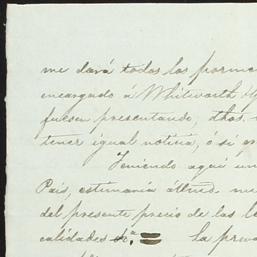 me dará todos los porme
encargado á Whitworth
fuesen presentando, dhos.
tener igual noticia, ó si
Teniendo aqui un
País, estimaria
del presente precio de las
calidades la